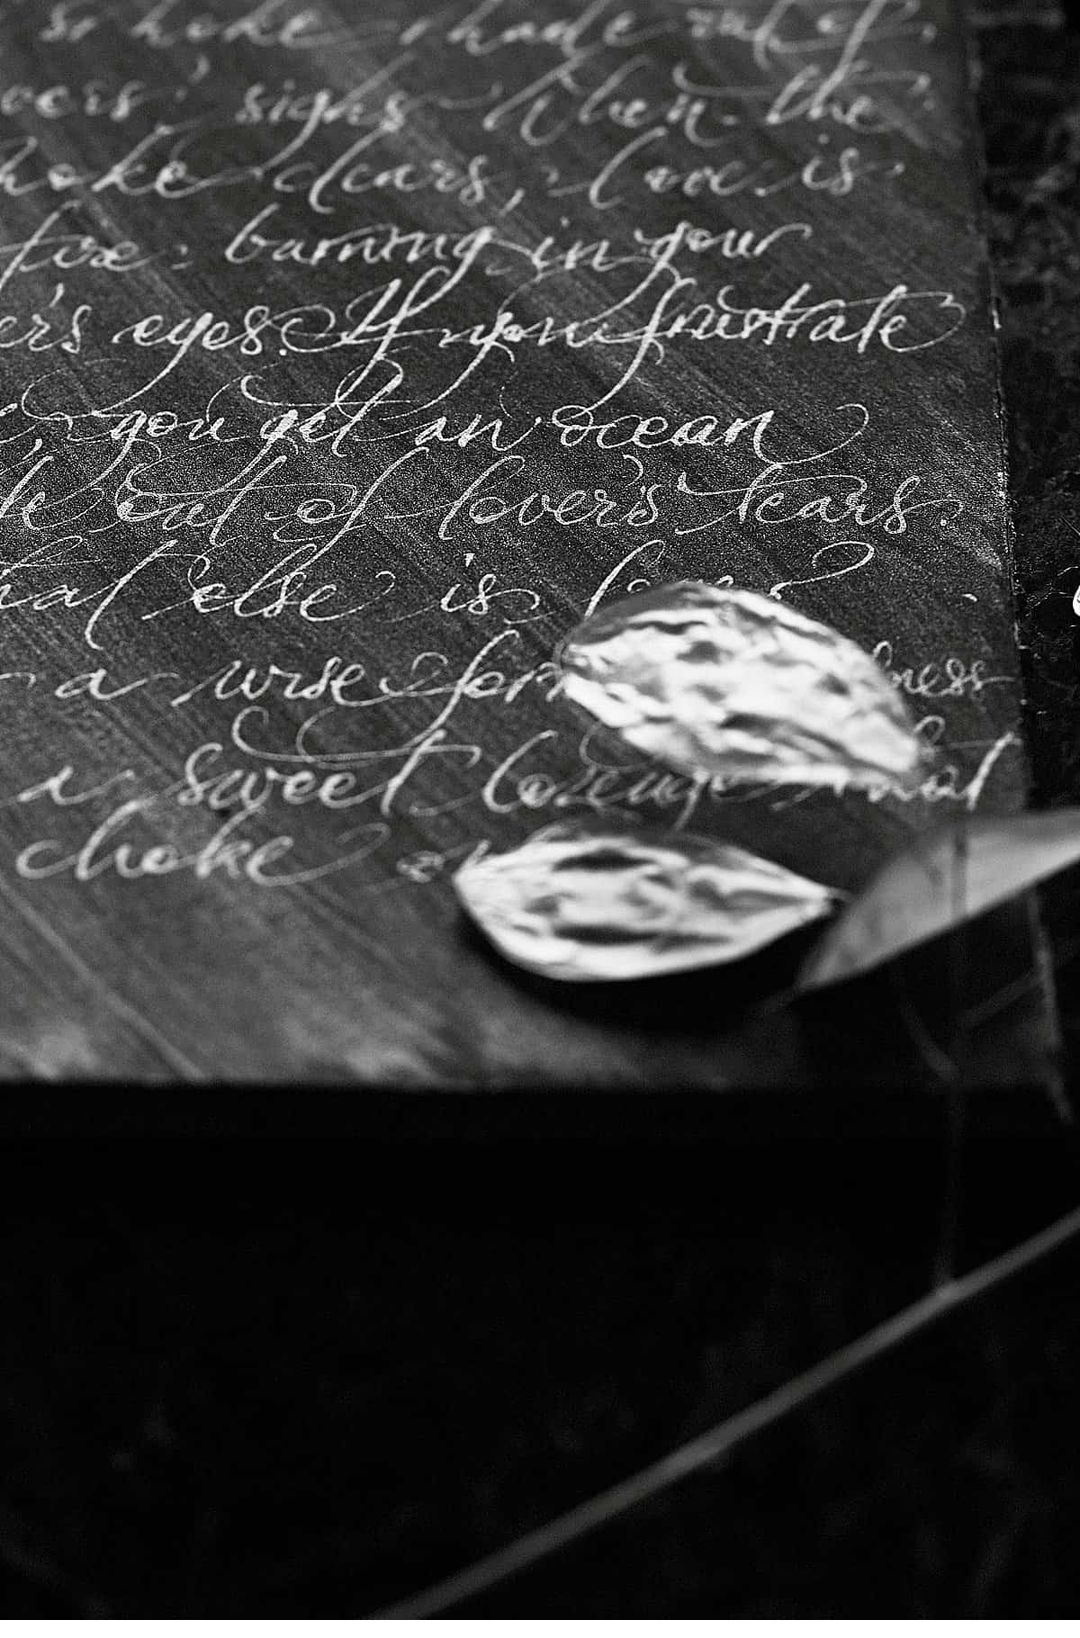 smoke made out of
sighs When the
smoke clears, love is
fire burning in your
er's eyes. If you frustrate
you get an ocean
out of lover's tears.
hat else is love?
a wise form ness
a sweet lozenge that
choke